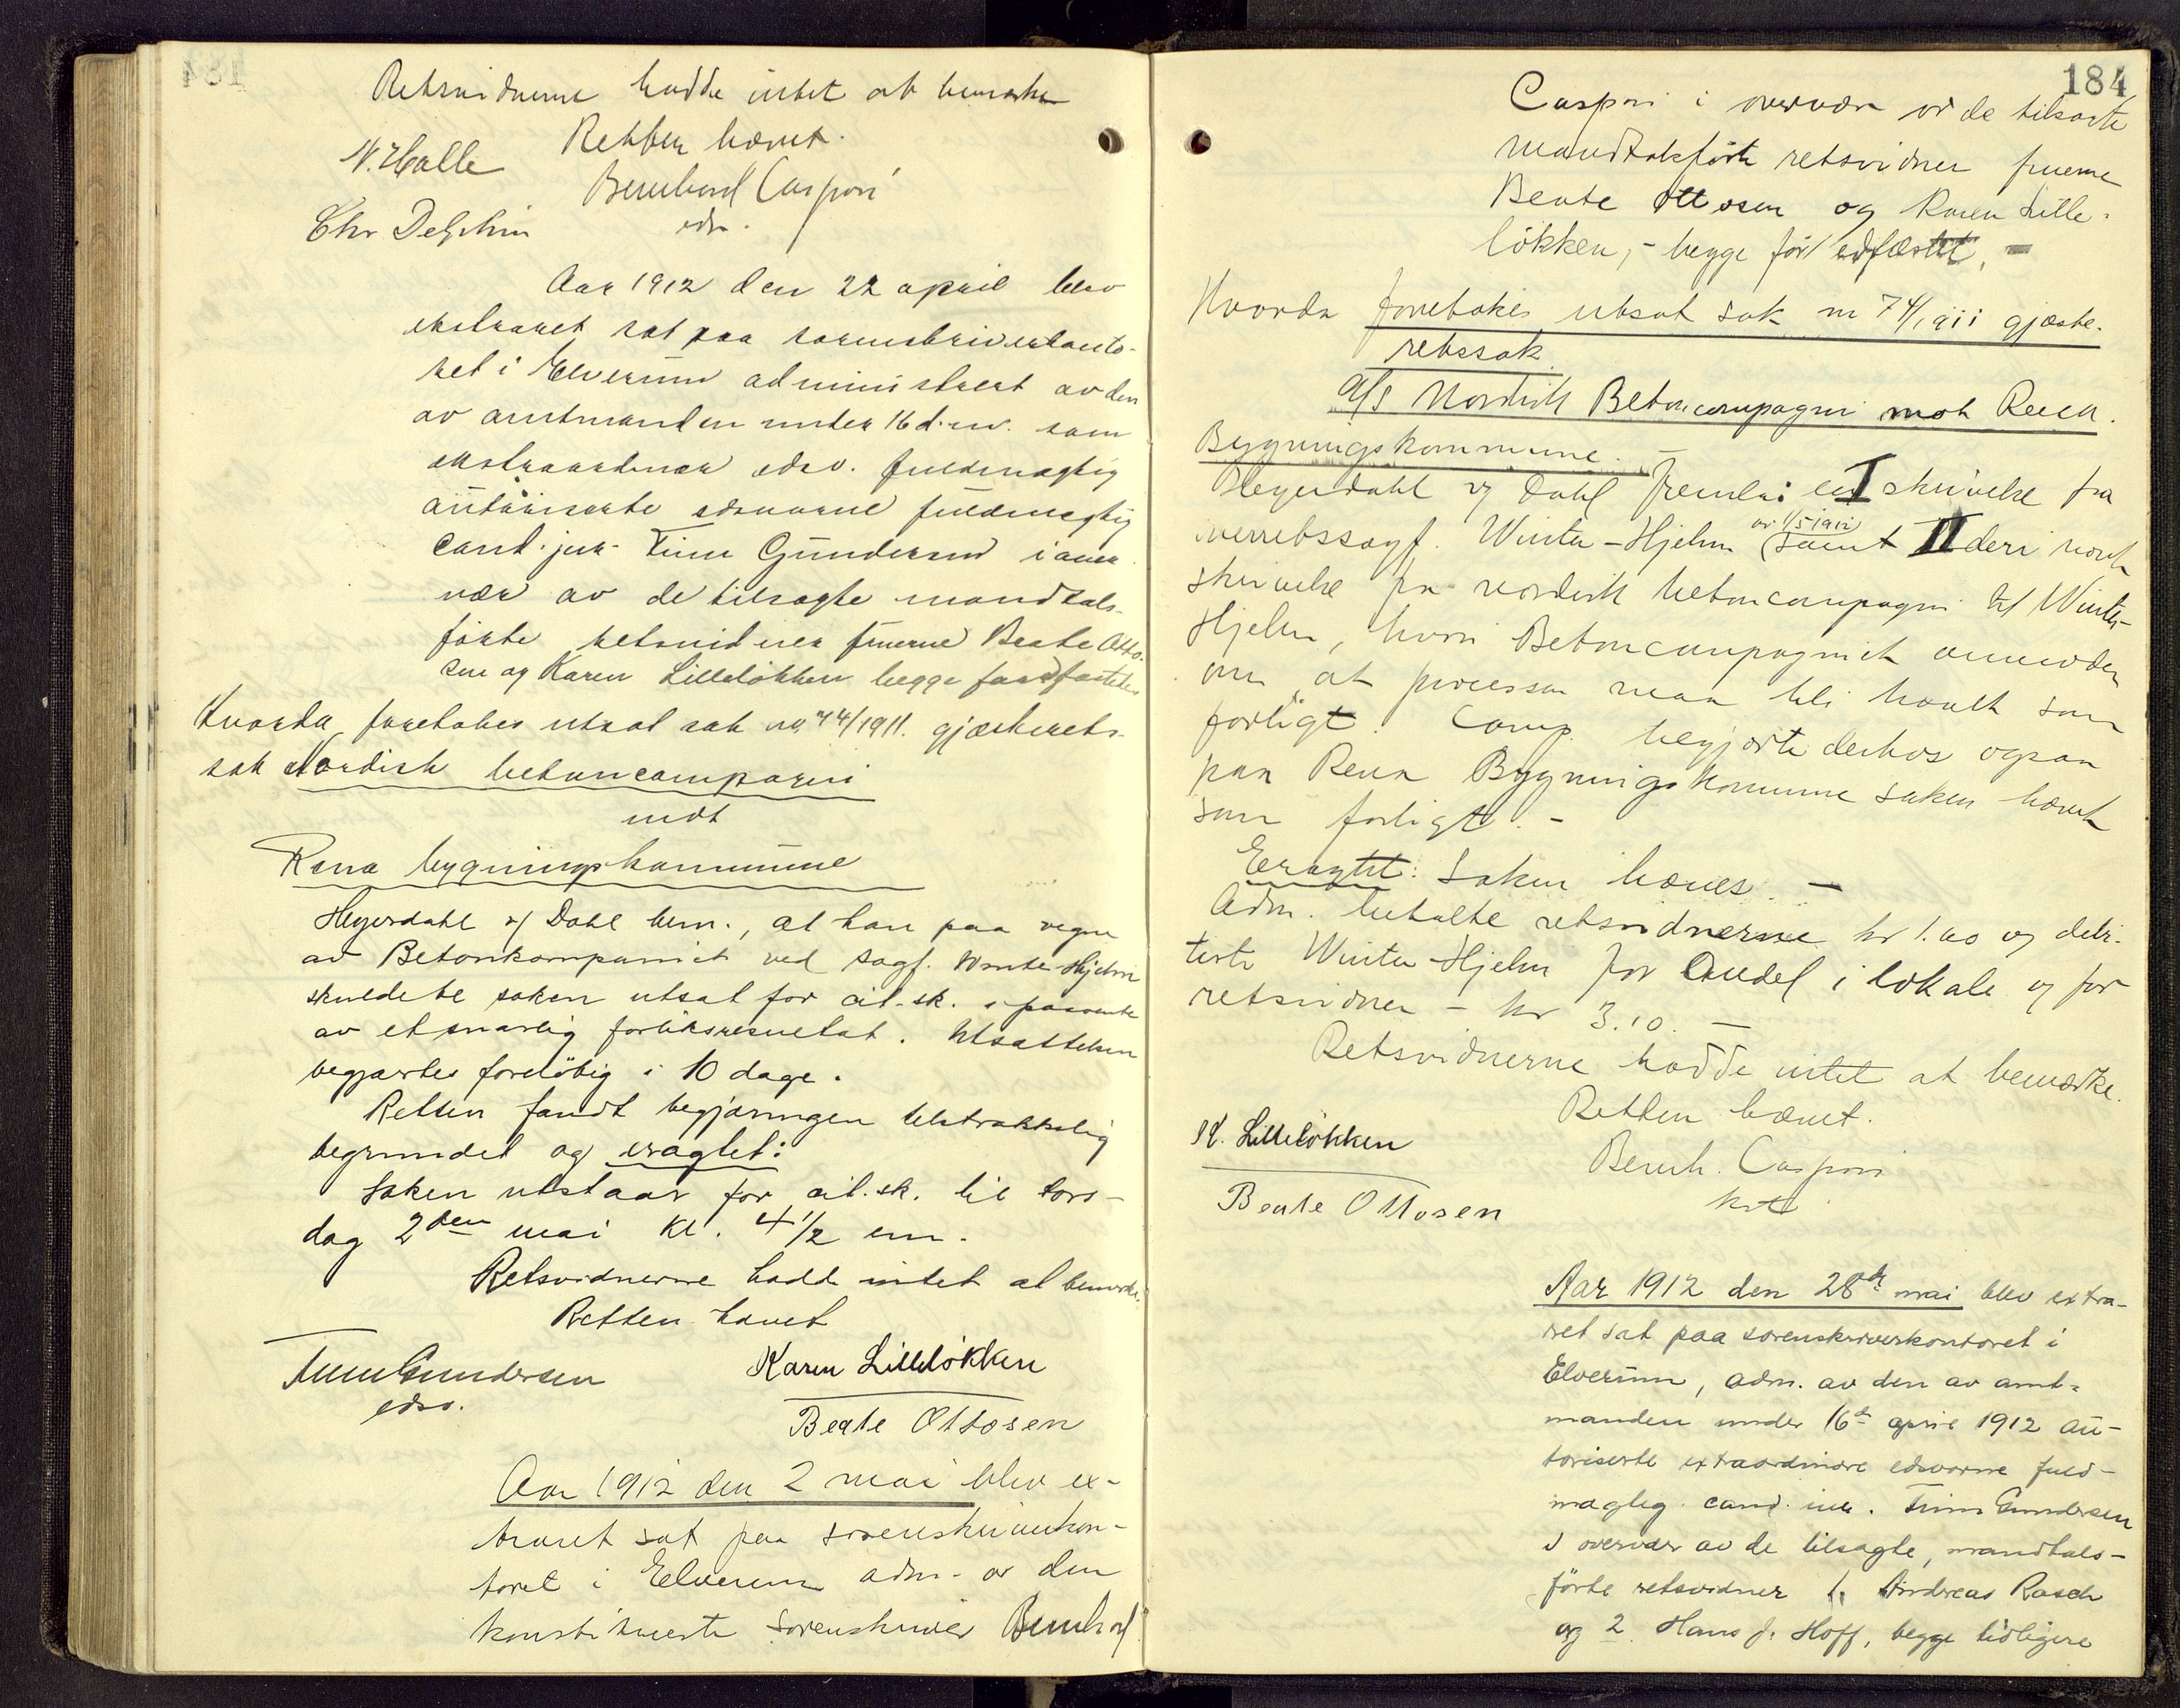 Retsvidnerne hadde intet at bemerke
Retten hævet.
N. Halle
Bernhard Caspari
Chr Delphin
edsv.
Aar 1912 den 22 april blev
ekstraret sat paa sorenskriverkonto-
ret i Elverum administrert av den
av amtmanden under 16 d. m. som
ekstraordinær edsv. fuldmægtig
autoriserte edsvorne fuldmægtig
cand. jur. Finn Gundersen i over
vær av de tilsagte mandtals-
førte retsvidner fruerne Beate Otto-
sen og Karen Lilleløkken begge før edfæstede
Hvorda foretokes utsat sak no. 74/1911. gjæsterets-
sak Nordisk betoncompagni
mot
Rena bygningskommune
Heyerdahl v/ Dahl bem., at han paa vegne
av Betonkompaniet ved sagf. Winter-Hjelm
skulde be saken utsat for ait. sk. i paavente
av et snarlig forliksresultat. Utsættelsen
begjærtes foreløbig i 10 dage.
Retten fandt begjæringen tilstrækkelig
begrundet og eragtet:
Saken utstaar for ait. sk. til tors-
dag 2den mai kl. 4 1/2 em.
Retsvidnerne hadde intet at bemerke.
Retten hævet
Finn Gundersen
Karen Lilleløkken
edsv.
Beate Ottosen
Aar 1912 den 2 mai blev ex-
traret sat paa sorenskriverkon-
toret i Elverum adm. av den
konstituerte sorenskriver Bernhard
184
Caspari i overvær av de tilsagte
mandtalsførte retsvidner fruerne
Beate Ottosen og Karen Lille-
løkken, - begge før edfæstet, -
Hvorda foretokes utsat sak nr 74/1911 gjæste-
retssak
A/S Nordisk Betoncompagni mot Rena
Bygningskommune. -
Heyerdahl v/ Dahl fremla: I skrivelse fra
overretssagf. Winter-Hjelm av 1/5 1912 samt II deri nævnt
skrivelse fra nordisk betoncompagni til Winter-
Hjelm, hvori Betoncompagniet anmoder
om at processen maa bli hævet som
forligt. Comp. begjærte derhos ogsaa
paa Rena Bygningskommune saken hævet
som forligt. -
Eragtet: Saken hæves. -
Adm. betalte retsvidnerne kr 1.60 og debi-
terte Winter-Hjelm for Andel i lokale og for
retsvidner - kr 3.10. -
Retsvidnerne hadde intet at bemærke.
Retten hævet.
K. Lilleløkken
Bernh. Caspari
Beate Ottosen
kst
Aar 1912 den 28de mai blev extra-
ret sat paa sorenskriverkontoret i
Elverum, adm. av den av amt-
manden under 16de april 1912 au-
toriserte extraordinære edsvorne fuld-
mægtig cand. jur. Finn Gundersen
i overvær av de tilsagte, mandtals-
førte retsvidner 1. Andreas Rasch
og 2. Hans J. Hoff, begge tidligere